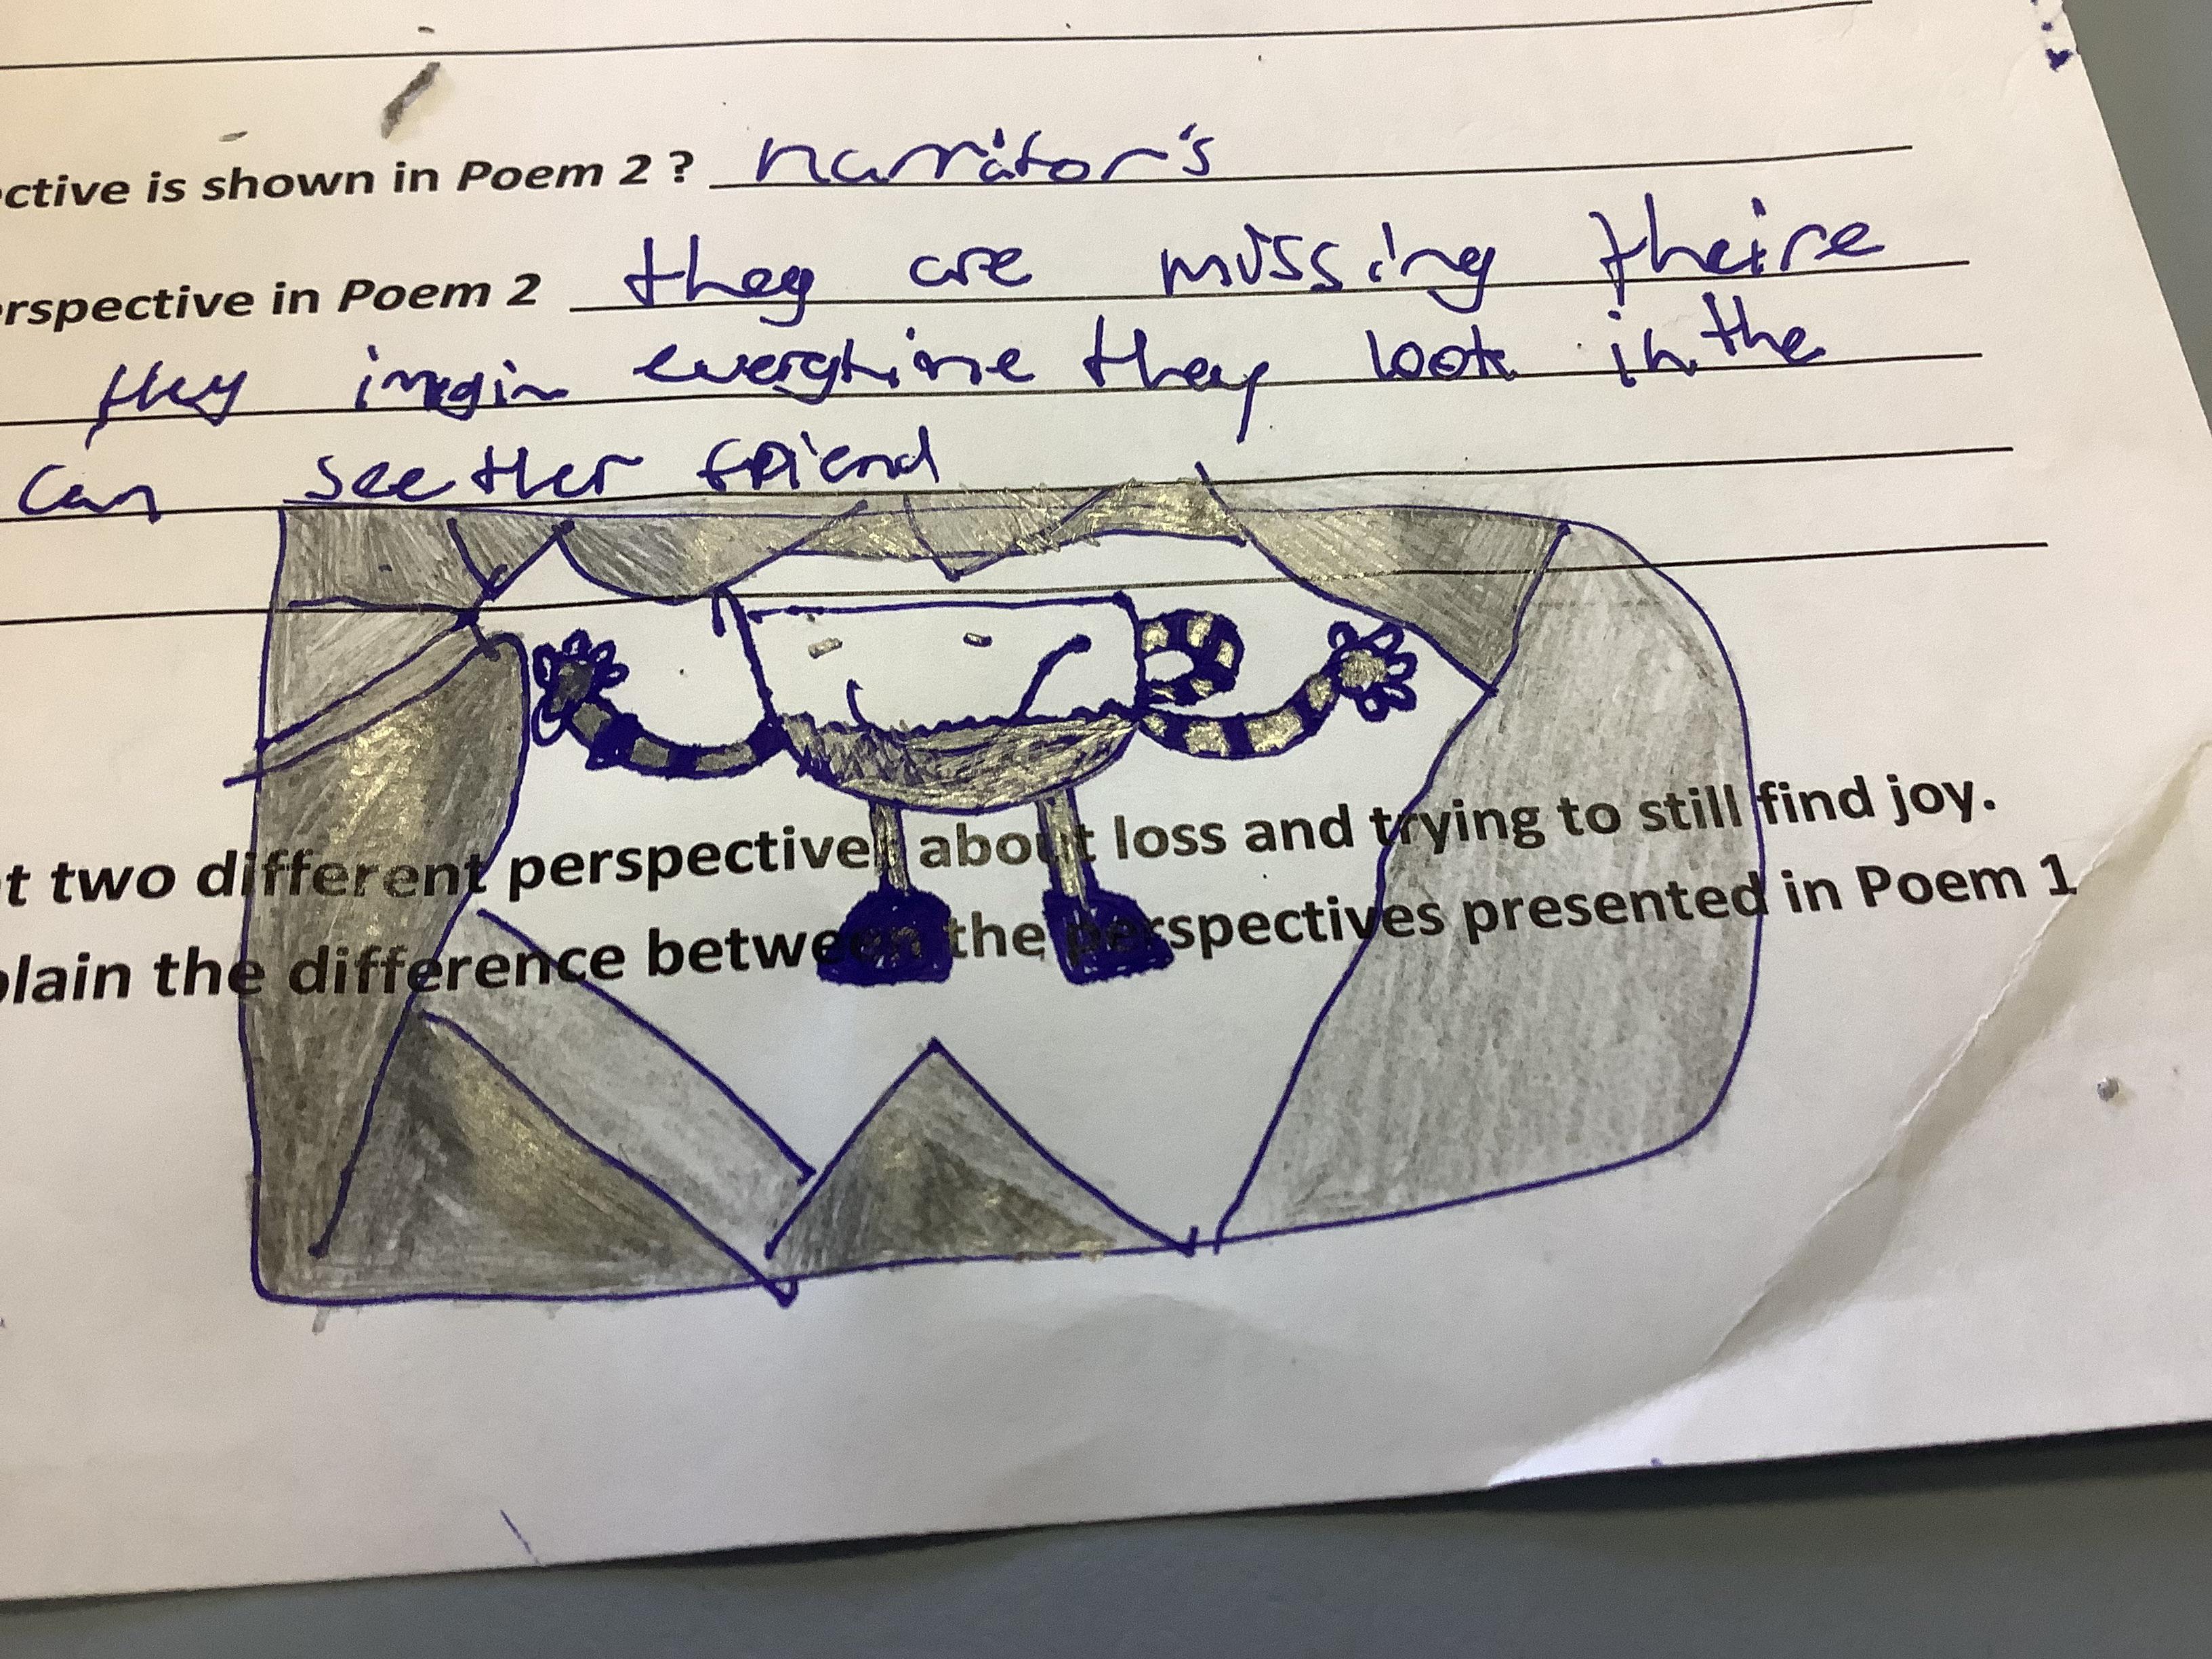 ctive is shown in Poem 2 ? narrator's
rspective in Poem 2 they are missing theire
they imagin everytime they look in the
can see ther friend
t two different perspective about loss and trying to still find joy.
plain the difference between the perspectives presented in Poem 1